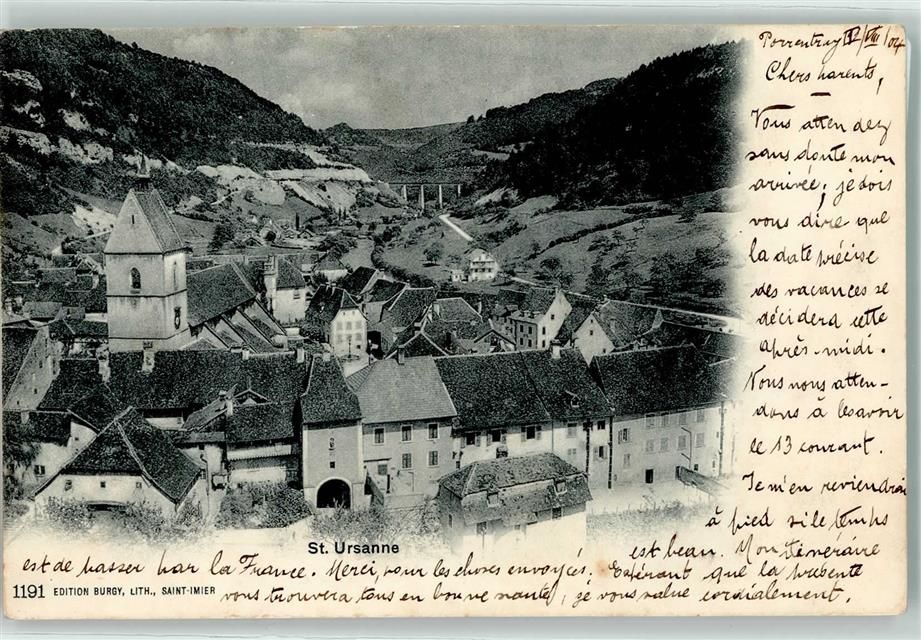 Porrentruy /VIII/04
Chers parents,
Vous attendez
sans doute mon
arrivée; je dois
vous dire que
la date précise
des vacances se
décidera cette
après-midi.
Nous nous atten-
dons à l'avoir
le 13 courant.
Je m'en reviendrai
à pied si le temps
est beau. Mon itinéraire
est de passer par la France. Merci, pour les choses envoyés. Espérant que la présente
vous trouvera tous en bonne santé, je vous salue cordialement.
St. Ursanne
1191 EDITION BURGY, LITH., SAINT-IMIER